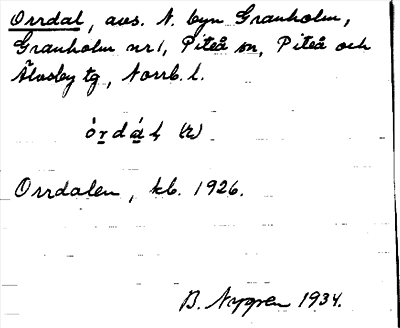 Orrdal, avs. N. byn Granholm,
Granholm nr 1, Piteå sn, Piteå och
Älvsby tg, Norrb. l.
Orrdalen, kb. 1926.
B. Nygren 1934.